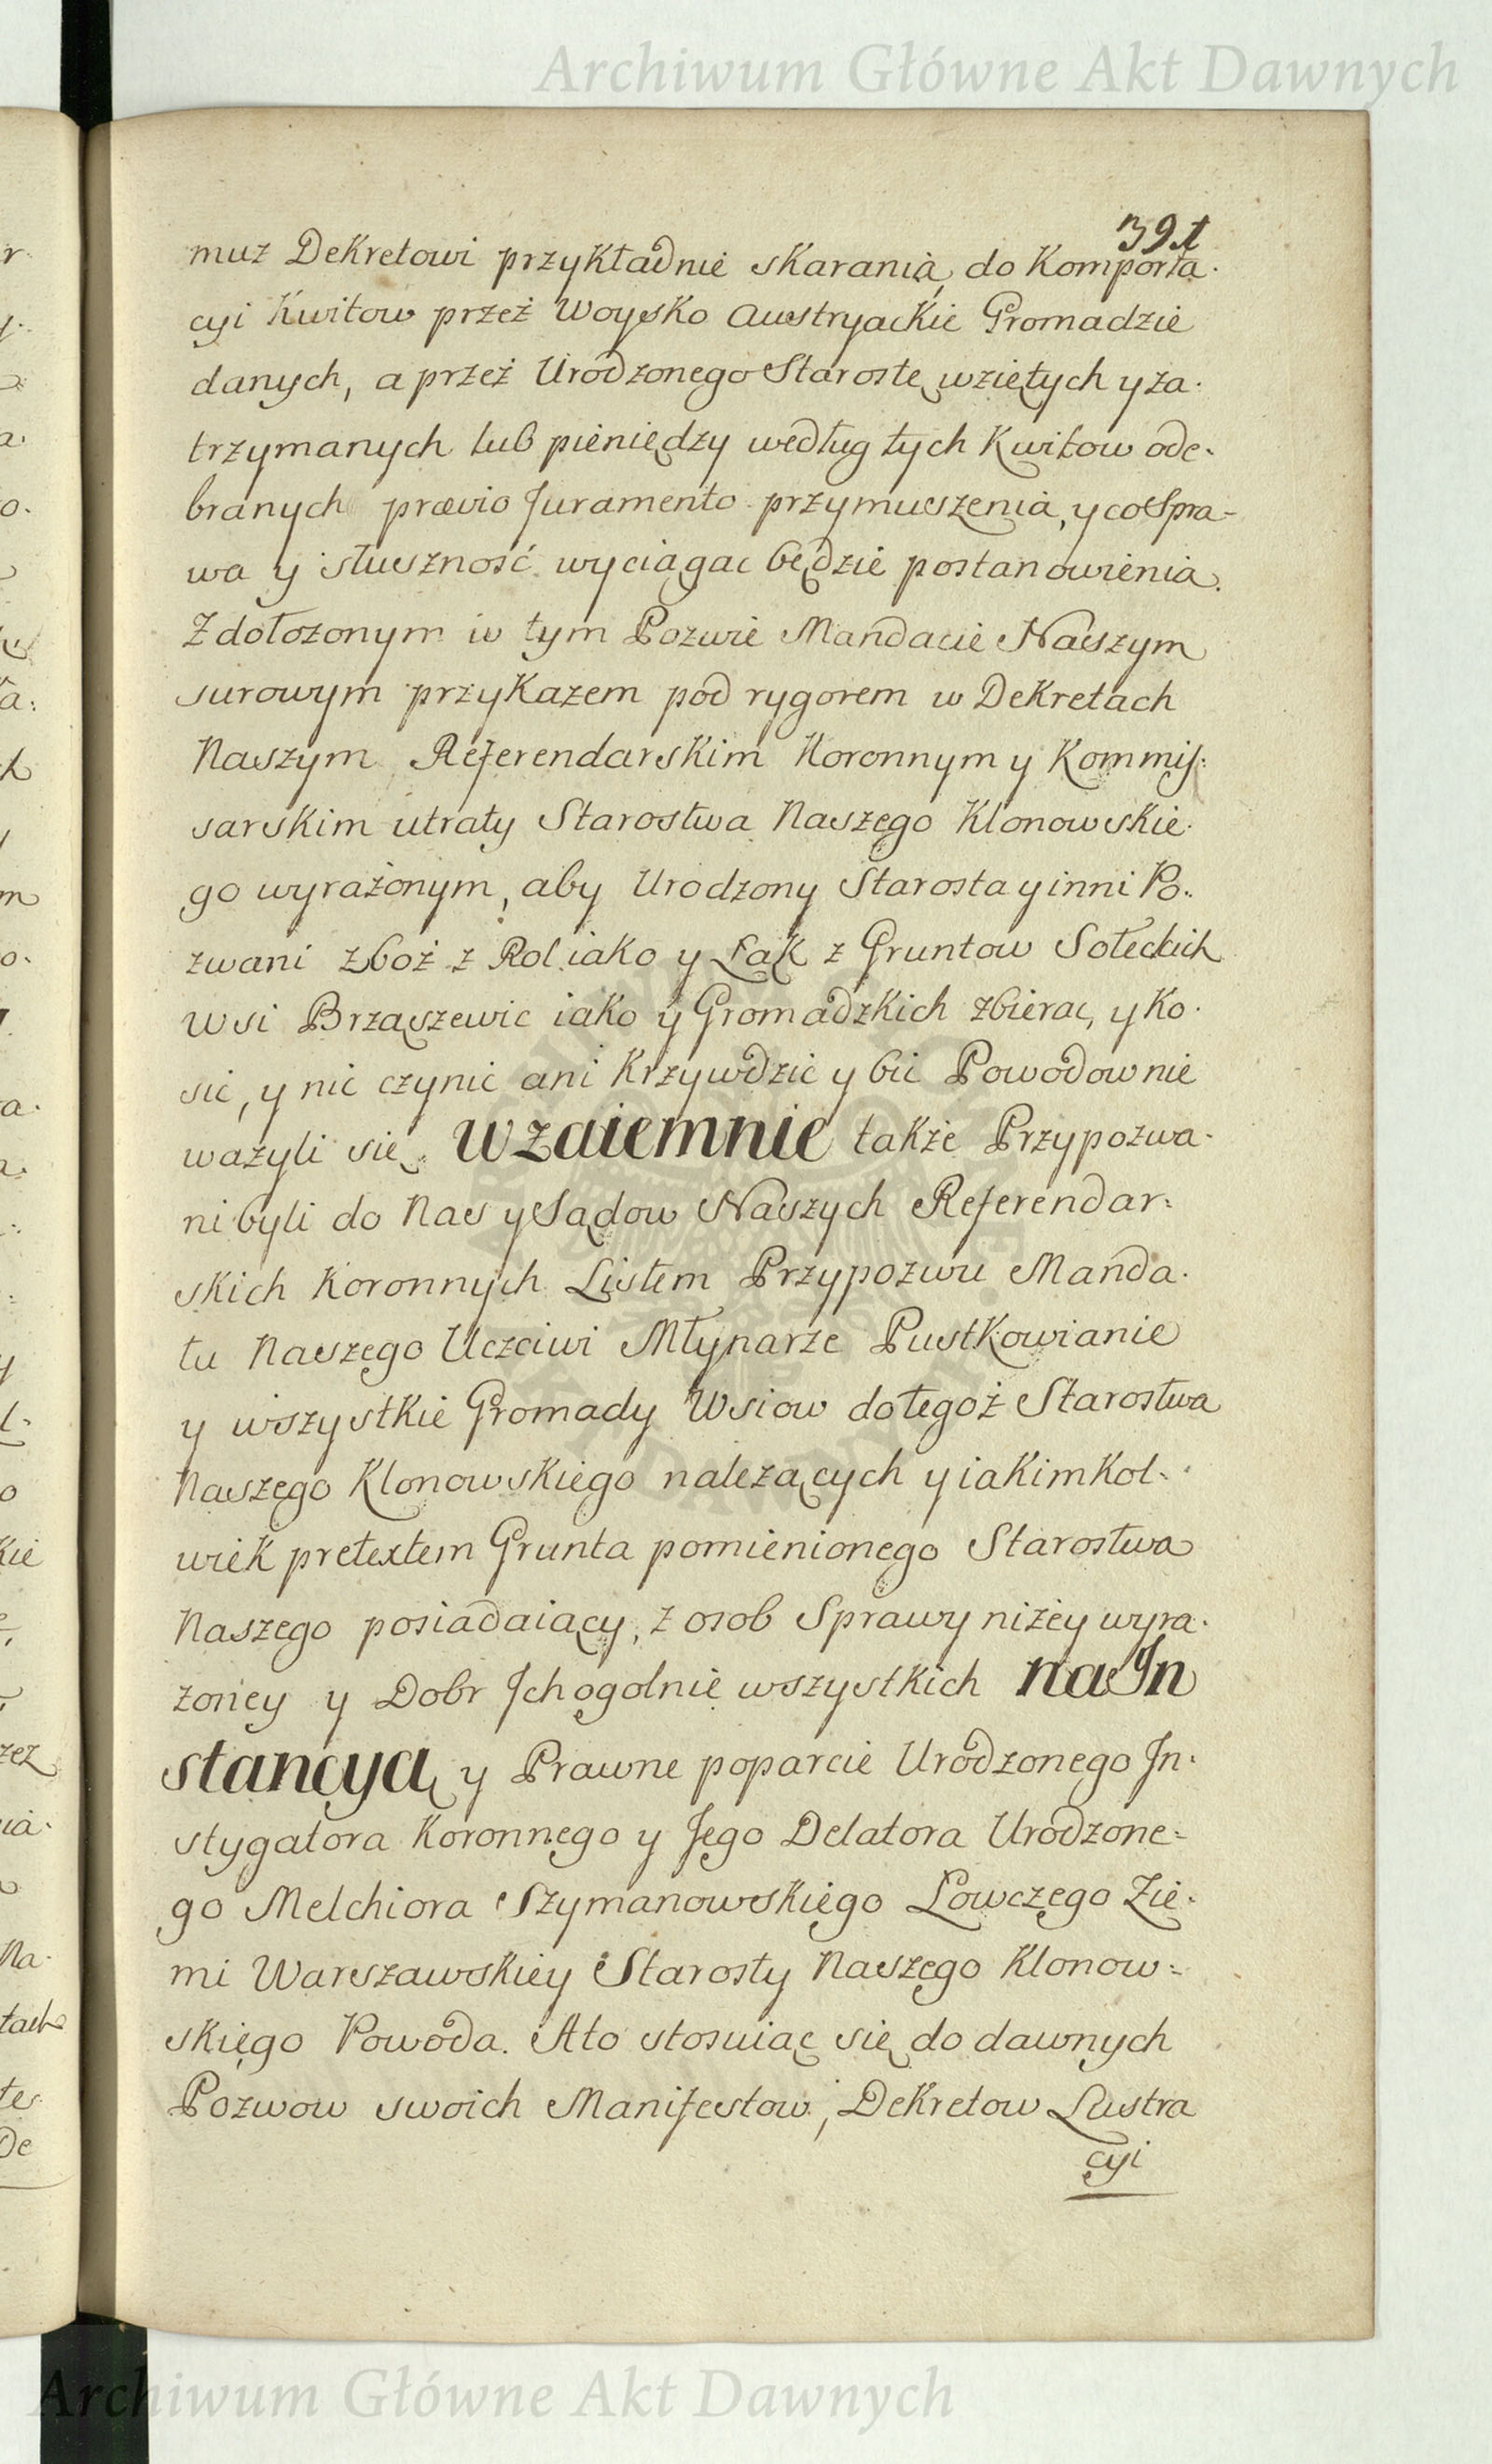 Archiwum Główne Akt Dawnych
391
muz Dekretowi przykładnie skarania, do Komporta.
cyi Kwitow przeż Woysko Austryackie Gromadzie
danych, a przeż Urodzonego Starostę wziętych y za.
trzymanych lub pieniędzy według tych Kwitow ode.
branych prævio Juramento przymuszenia, y co Spra-
wa y słuszność wyciągac będzie postanowienia.
Z dołozonym w tym Pozwie Mandacie Naszym
surowym przykazem pod rygorem w Dekretach
Naszym Referendarskim Koronnym y Kommis:
sarskim utraty Starostwa Naszego Klonowskie.
go wyrażonym, aby Urodzony Starosta y inni Po..
zwani zboż z Rol iako y Łąk z Gruntow Sołeckich
Wsi Brzaszewic iako y Gromadzkich zbierac, y Ko.
sic, y nic czynic ani Krzywdzic y bic Powodow nie
ważyli się. Wzaiemnie także Przypozwa.
ni byli do Nas y Sądow Naszych Referendar:
skich Koronnych Listem Przypozwu Manda.
tu Naszego Uczciwi Młynarze Pustkowianie
y wszystkie Gromady Wsiow do tegoż Starostwa
Naszego Klonowskiego należących y iakimkol.
wiek pretextem Grunta pomienionego Starostwa
Naszego posiadaiący, z osob Sprawy niżey wyra.
żoney y Dobr Jch ogolnie wszystkich na Jn
stancyą y Prawne poparcie Urodzonego Jn.
stygatora Koronnego y Jego Delatora Urodzone=
go Melchiora Szymanowskiego Łowczego Zie.
mi Warszawskiey Starosty Naszego Klonow=
skiego Powoda. A to stosuiąc się do dawnych
Pozwow swoich Manifestow, Dekretow Lustra
cyi
Archiwum Główne Akt Dawnych